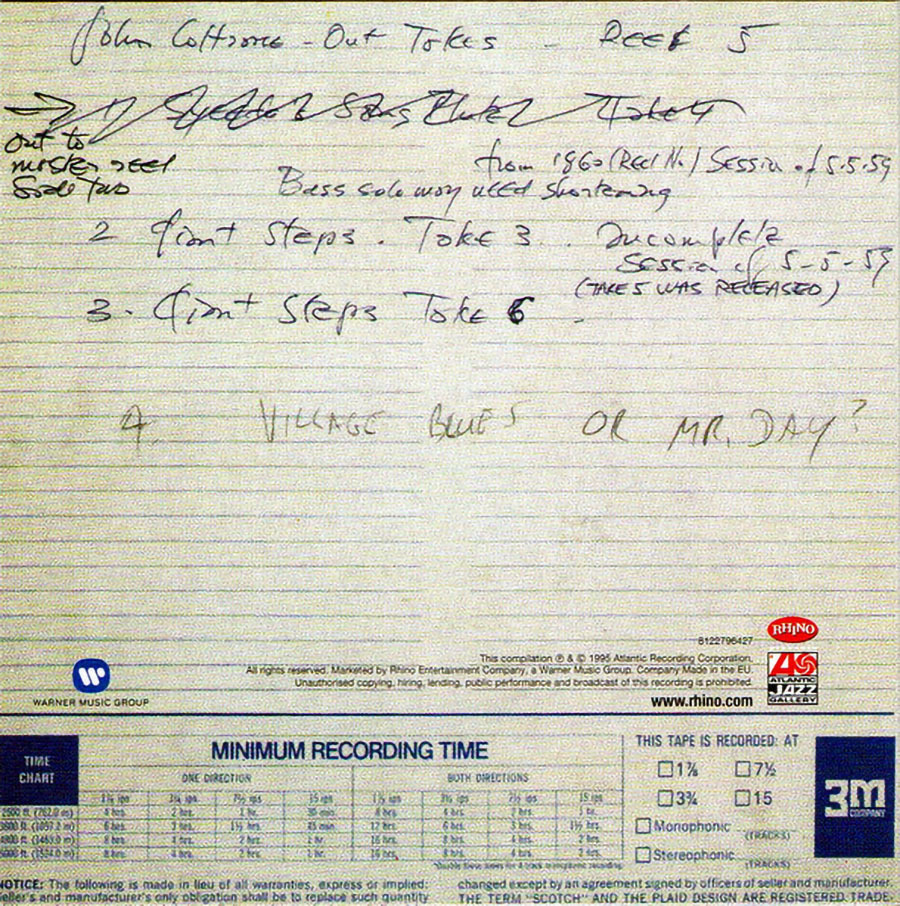 John Coltrane - Out Takes - REEL 5
1) Syeeda's Song Flute Take 4
Out to
master reel
Side two
from 1960 (Reel No.) Session of 5-5-59
Bass solo may need shortening
2 Giant Steps. Take 3.. Incomplete
Session of 5-5-59
(TAKE 5 WAS RELEASED)
3. Giant Steps Take 6 -
4. VILLAGE BLUES OR MR. DAY?
RHINO
8122796427
This compilation ℗ & © 1995 Atlantic Recording Corporation.
All rights reserved. Marketed by Rhino Entertainment Company, a Warner Music Group. Company Made in the EU.
Unauthorised copying, hiring, lending, public performance and broadcast of this recording is prohibited.
www.rhino.com
ATLANTIC
JAZZ
GALLERY
WARNER MUSIC GROUP
TIME
CHART
MINIMUM RECORDING TIME
ONE DIRECTION BOTH DIRECTIONS
1⅞ ips 3¾ ips 7½ ips 15 ips 1⅞ ips 3¾ ips 7½ ips 15 ips
2500 ft. (762.0 m) 4 hrs. 2 hrs. 1 hr. 30 min. 8 hrs. 4 hrs. 2 hrs. 1 hr.
3600 ft. 6 hrs. 3 hrs. 1½ hrs. 45 min. 12 hrs. 6 hrs. 3 hrs. 1½ hrs.
4800 ft. 8 hrs. 4 hrs. 2 hrs. 1 hr. 16 hrs. 8 hrs. 4 hrs. 2 hrs.
8 hrs. 4 hrs. 2 hrs. 1 hr. 16 hrs. 8 hrs. 4 hrs. 2 hrs.
THIS TAPE IS RECORDED: AT
1⅞ 7½
3¾ 15
Monophonic (TRACKS)
Stereophonic (TRACKS)
3M
COMPANY
NOTICE: The following is made in lieu of all warranties, express or implied:
eller's and manufacturer's only obligation shall be to replace such quantity
changed except by an agreement signed by officers of seller and manufacturer.
THE TERM "SCOTCH" AND THE PLAID DESIGN ARE REGISTERED TRADE-